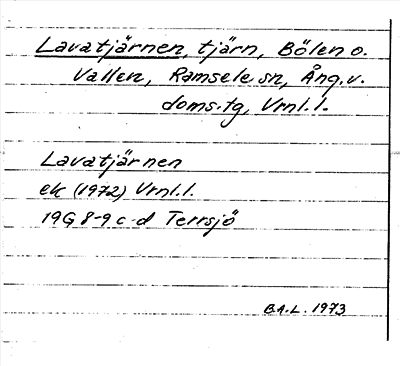 Lavatjärnen, tjärn, Bölen o.
Vallen, Ramsele sn, Ång.v.
doms.tg, Vrnl.l.
Lavatjärnen
ek (1972) Vrnl.l.
19G 8-9 c-d Terrsjö
B.A.L. 1973